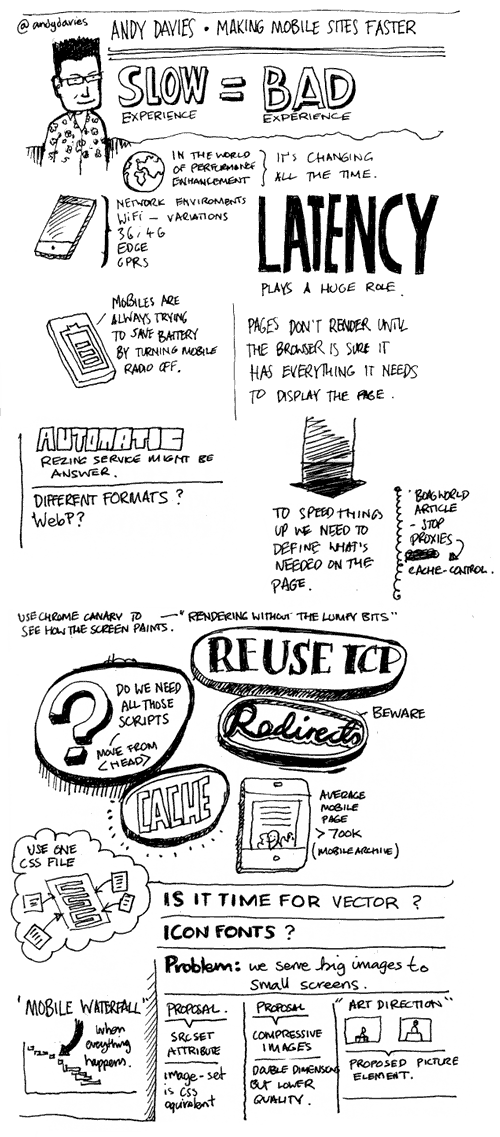 @andydavies
ANDY DAVIES • MAKING MOBILE SITES FASTER
SLOW = BAD
EXPERIENCE EXPERIENCE
IN THE WORLD
OF PERFORMANCE
ENHANCEMENT
IT'S CHANGING
ALL THE TIME.
NETWORK ENVIROMENTS
WiFi – VARIATIONS
3G / 4G
EDGE
GPRS
LATENCY
PLAYS A HUGE ROLE.
MOBILES ARE
ALWAYS TRYING
TO SAVE BATTERY
BY TURNING MOBILE
RADIO OFF.
PAGES DON'T RENDER UNTIL
THE BROWSER IS SURE IT
HAS EVERYTHING IT NEEDS
TO DISPLAY THE PAGE.
AUTOMATIC
REZING SERVICE MIGHT BE
ANSWER.
DIFFERENT FORMATS?
WebP?
TO SPEED THINGS
UP WE NEED TO
DEFINE WHAT'S
NEEDED ON THE
PAGE.
BOAGWORLD
ARTICLE
- STOP
PROXIES
CACHE-CONTROL.
USE CHROME CANARY TO — "RENDERING WITHOUT THE LUMPY BITS"
SEE HOW THE SCREEN PAINTS.
REUSE TCP
? DO WE NEED
ALL THOSE
SCRIPTS
MOVE FROM
<HEAD>
Redirects
BEWARE
CACHE
AVERAGE
MOBILE
PAGE
> 700K
(MOBILE ARCHIVE)
USE ONE
CSS FILE
IS IT TIME FOR VECTOR?
ICON FONTS?
Problem: we serve big images to
small screens.
'MOBILE WATERFALL"
when
everything
happens.
PROPOSAL.
SRCSET
ATTRIBUTE
image-set
is CSS
equivalent
PROPOSAL
COMPRESSIVE
IMAGES
DOUBLE DIMENSIONS
BUT LOWER
QUALITY.
"ART DIRECTION"
PROPOSED PICTURE
ELEMENT.